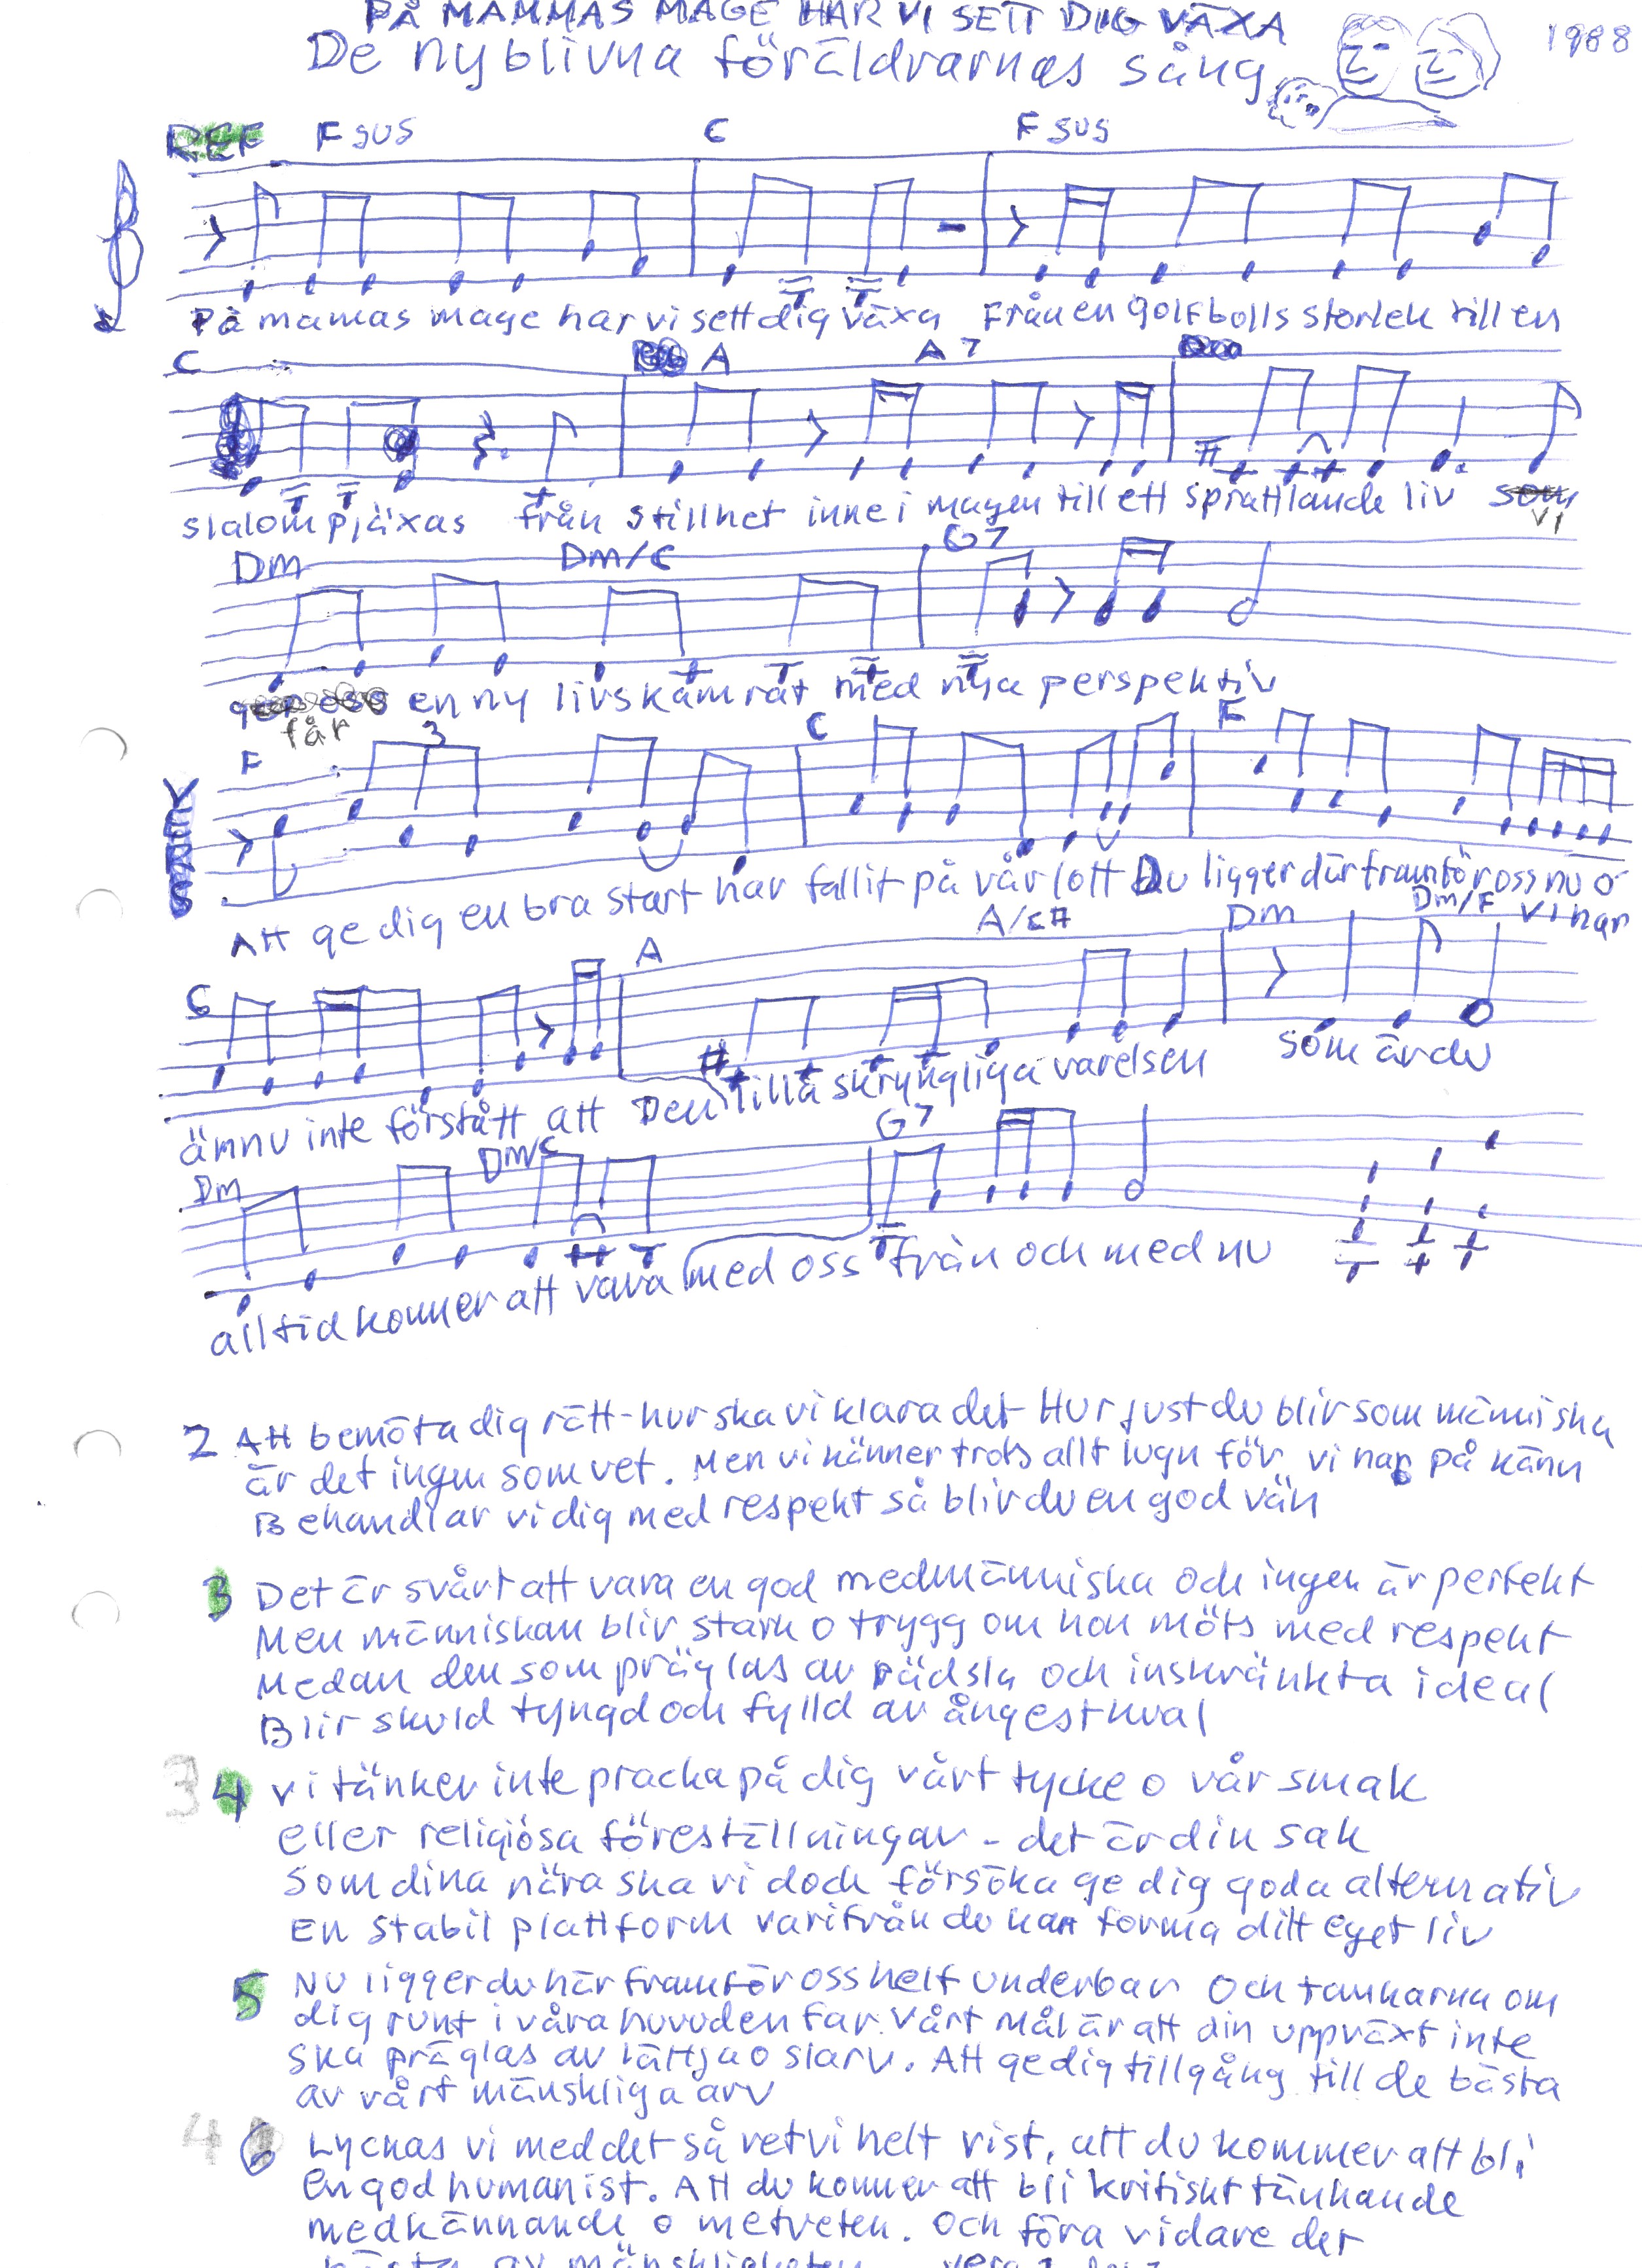 PÅ MAMMAS MAGE HAR VI SETT DIG VÄXA
De nyblivna föräldrarnas sång
1988
REF Fsus C Fsus
På mamas mage har vi sett dig växa Från en golfbolls storlek till en
C A A7
slalompjäxas från stillhet inne i magen till ett sprattlande liv som
vi
Dm Dm/C G7
ger oss en ny livskamrat med nya perspektiv
får
VERS F 3 C F
Att ge dig en bra start har fallit på vår lott Du ligger där framför oss nu o
vi har
C A A/C# Dm Dm/F
ännu inte förstått att Den lilla skrynkliga varelsen som är du
Dm Dm/C G7
alltid kommer att vara med oss från och med nu
2 Att bemöta dig rätt - hur ska vi klara det Hur just du blir som människa
är det ingen som vet. Men vi känner trots allt lugn för vi har på känn
Behandlar vi dig med respekt så blir du en god vän
3 Det är svårt att vara en god medmänniska och ingen är perfekt
Men människan blir stark o trygg om hon möts med respekt
Medan den som präglas av rädsla och inskränkta ideal
Blir skuld tyngd och fylld av ångestkval
3 4 vi tänker inte pracka på dig vårt tycke o vår smak
eller religiösa föreställningar - det är din sak
Som dina nära ska vi dock försöka ge dig goda alternativ
En stabil plattform varifrån du kan forma ditt eget liv
5 Nu ligger du här framför oss helt underbar Och tankarna om
dig runt i våra huvuden far. Vårt mål är att din uppväxt inte
ska präglas av lättja o slarv. Att ge dig tillgång till de bästa
av vårt mänskliga arv
4 6 Lyckas vi med det så vet vi helt visst, att du kommer att bli
en god humanist. Att du kommer att bli kritiskt tänkande
medkännande o metveten. Och föra vidare det
bästa av mänskligheten